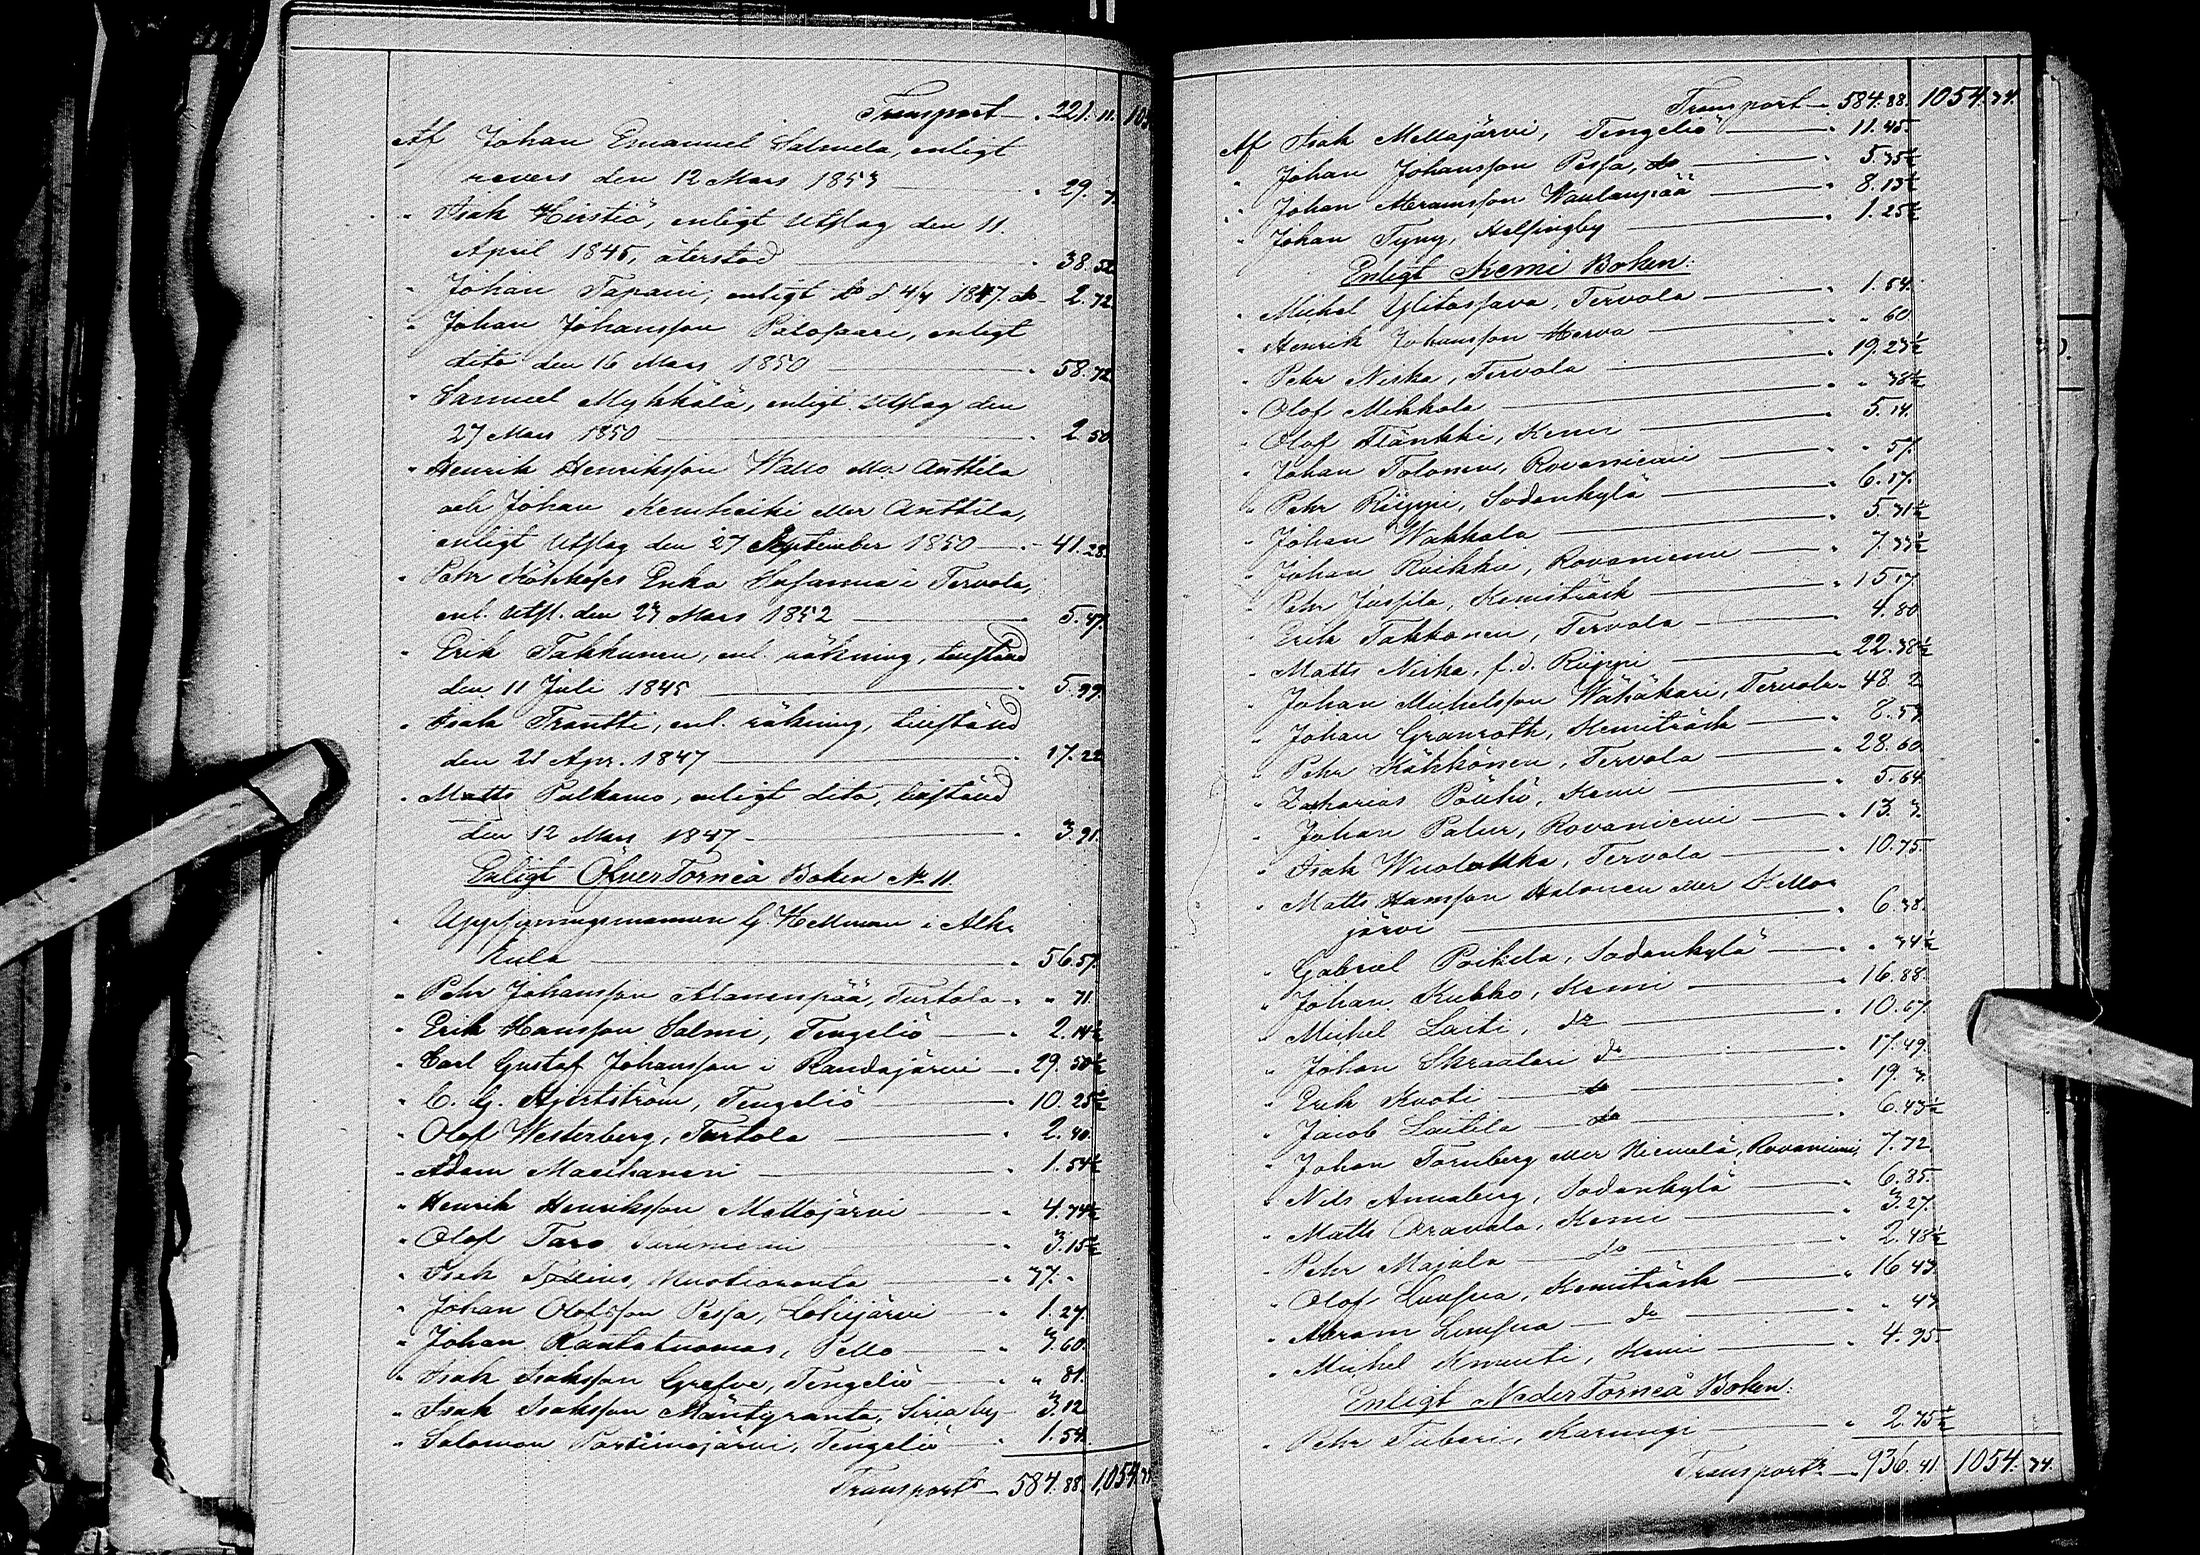 Transport — . 221. 11. 105
Af Johan Emanuel Salmela, enligt
revers den 12 Mars 1853 — . 29. 7.
" Isak Hirstiö, enligt Utslag den 11.
April 1845, återstod — . 38. 52
" Johan Tapani, enligt do d 4/4 1847. do - 2. 72
" Johan Johansson Palopare, enligt
dito den 16 Mars 1850 — . 58. 72
" Samuel Mykkälä, enligt Utslag den
27 Mars 1850 — . 2. 50
" Henrik Henriksson Wallo eller Anttila
och Johan Kemiheiki eller Anttila,
enligt Utslag den 27 September 1850 — . 41. 28.
" Pehr Köhköses Enka Susanna i Tervola,
enl. Utsl. den 23 Mars 1852 — 5. 47.
" Erik Takkunen, enl. räkning, tillstånd
den 11 Juli 1845 — . 5. 99
" Isak Frantti, enl. räkning, tillstånd
den 21 Apr. 1847 — . 17. 22
" Matts Palkamo, enligt dito, tillstånd
den 12 Mars 1847 — . 3. 91.
Enligt ÖfverTorneå Boken No 11.
" Uppsyningsmannen G. Hellman i Alk-
kula — . 56. 57.
" Pehr Johansson Alanenpää, Turtola — . " 71.
" Erik Hansson Salmi, Tengeliö — . 2. 14½
" Carl Gustaf Johansson i Raudajärvi — . 29. 50½
" C. G. Hjertström, Tengeliö — . 10. 25½
" Olof Westerberg, Turtola — . 2. 40.
" Adam Marihanen — . 1. 54½
" Henrik Henriksson Mellajärvi — . 4. 74½
" Olof Taro — . 3. 15½
" Isak — . 37. "
" Johan Olofsson Pessa, Lohijärvi — . 1. 27.
" Johan Rantatuomas, Pello — . 3. 60.
" Isak Isaksson Grefve, Tengeliö — . " 81.
" Isak Isaksson Mäntyranta, — 3. 12
" Salomon Portimojärvi, Tengeliö — . 1. 54.
Transport — 584. 88. 1,054. 74
Transport — . 584. 88. 1054. 74.
Af Isak Mellajärvi, Tengeliö — . 11. 45.
" Johan Johansson Pessa, do — . 5. 35½
" Johan Abramsson Waulanpää — . 8. 13½
" Johan Tyny, Helsingby — . 1. 25½
Enligt Kemi Boken:
" Michel Ylitossava, Tervola — . 1. 54.
" Henrik Johansson Herva — . " 60
" Pehr Niska, Tervola — . 19. 23½
" Olof Mikkola — . " 38½
" Olof Flänkki, Kemi — . 5. 14.
" Johan Tolonen, Rovaniemi — . " 57.
" Pehr Riippi, Sodankylä — . 6. 17.
" Johan Wakkala — . 5. 31½
" Johan Ruikka, Rovaniemi — . 7. 33½
" Pehr Jussila, Kemiträsk — . 15 17
" Erik Takkonen, Tervola — . 4. 80
" Matts Niska, f. d. Riippi — . 22. 38½
" Johan Michelsson Wähäkari, Tervola - 48. 2
" Johan Granroth, Kemiträsk — . 8. 57
" Pehr Köhkönen, Tervola — . 28. 60
" Zacharias Pöntiö, Kemi — . 5. 64
" Johan Palur, Rovaniemi — . 13. 3.
" Isak Wuolukka, Tervola — . 10. 75.
" Matts Hansson Halonen eller Kello-
järvi — . 6. 38.
" Gabriel Poikela, Sodankylä — . " 34½
" Johan Kukko, Kemi — . 16. 88.
" Michel Laiti, do — . 10. 67.
" Johan Skraatari do — . 17. 49.
" Erik Kuoti — do — . 19. 3.
" Jacob Laitila — do — . 6. 43½
" Johan Tornberg eller Niemelä, Rovaniemi, 7. 72
" Nils Annaberg, Sodankylä — . 6. 85.
" Matts Aravala, Kemi — . 3. 27.
" Pehr Majala — do — . 2. 48½
" Olof Luusua, Kemiträsk — . 16. 43.
" Abram Luusua — do — . " 43
" Michel Knuuti, Kemi — . 4. 95.
Enligt NederTorneå Boken:
" Pehr Tuberi, Karungi — . 2. 75½
Transport — . 936. 41 1054. 74.